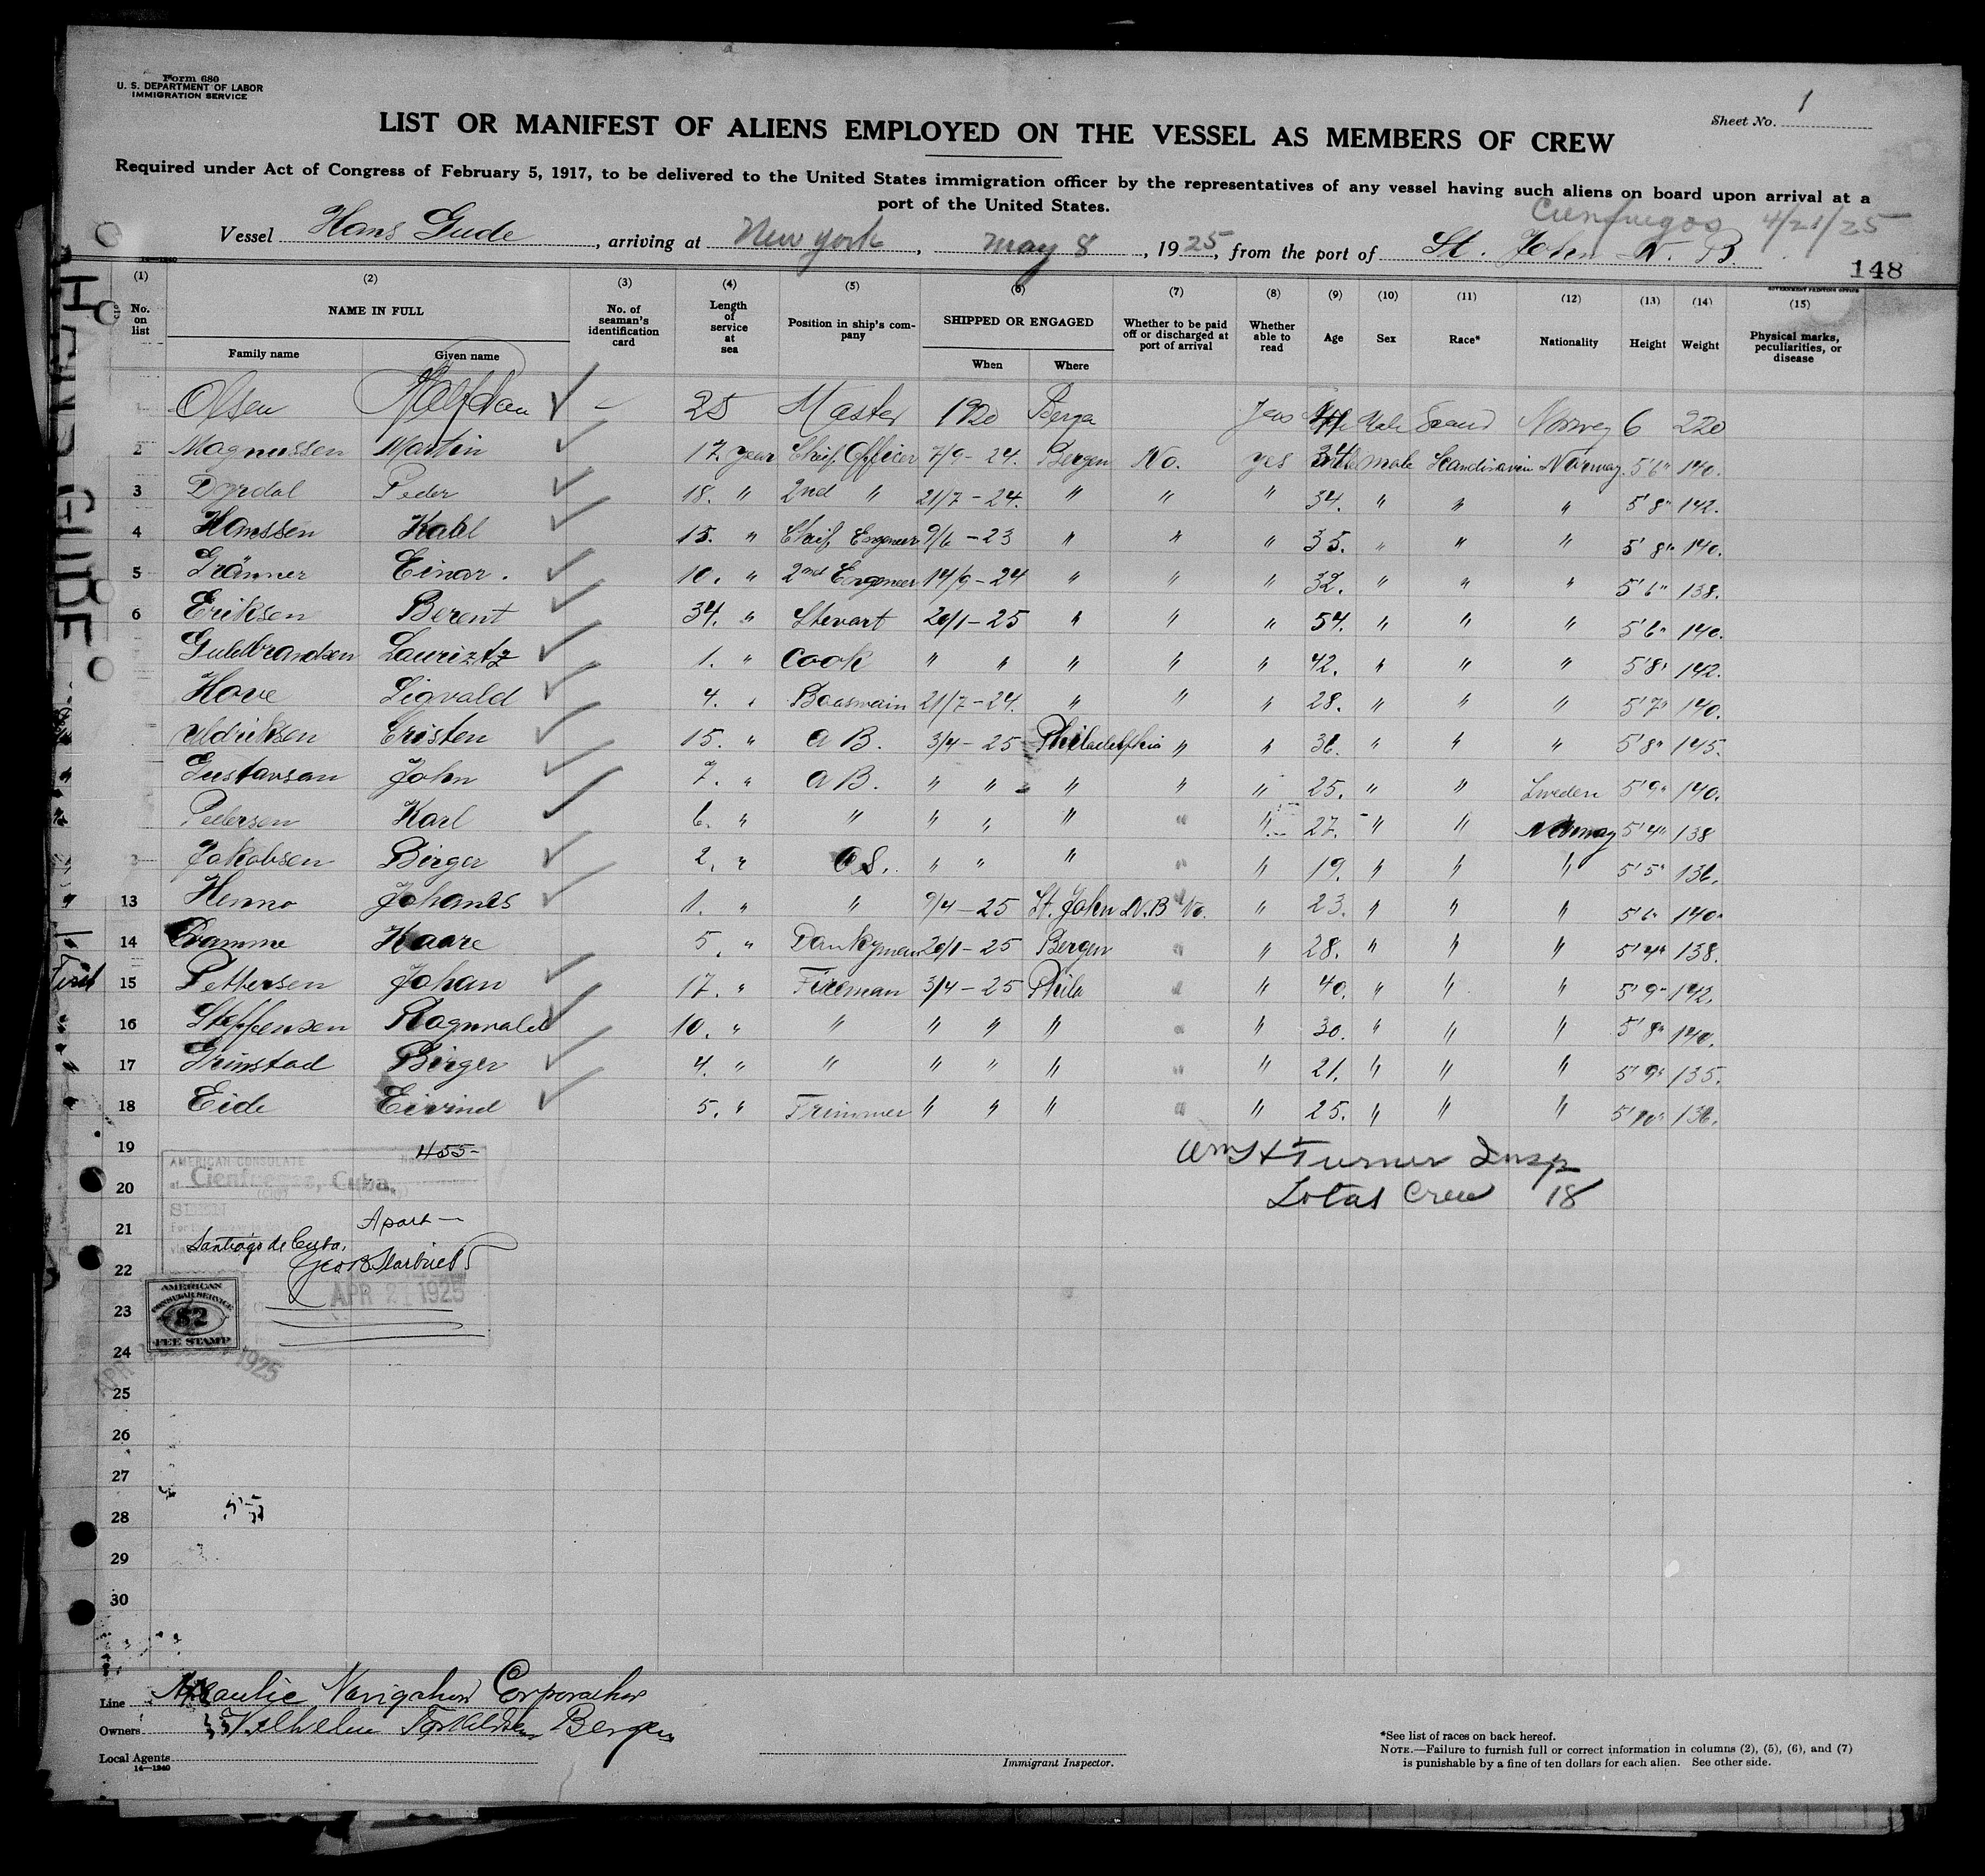 Form 680
U. S. DEPARTMENT OF LABOR
IMMIGRATION SERVICE
Sheet No. 1
LIST OR MANIFEST OF ALIENS EMPLOYED ON THE VESSEL AS MEMBERS OF CREW
Required under Act of Congress of February 5, 1917, to be delivered to the United States immigration officer by the representatives of any vessel having such aliens on board upon arrival at a
port of the United States.
Cienfuegos 4/21/25
Vessel Hans Gude, arriving at New York, May 8, 1925, from the port of St. John N. B.
148
HANS GUDE
(1) (2) (3) (4) (5) (6) (7) (8) (9) (10) (11) (12) (13) (14) (15)
No. on list NAME IN FULL Family name Given name No. of seaman's identification card Length of service at sea Position in ship's company SHIPPED OR ENGAGED When Where Whether to be paid off or discharged at port of arrival Whether able to read Age Sex Race* Nationality Height Weight Physical marks, peculiarities, or disease
Olsen Halfdan 25 Master 1920 Yes Male Scand Norway 6 220
2 Magnussen Martin 17 year Chief Officer 7/9-24. Bergen No. yes 34 male Scandinavia Norway 5'6" 140.
3 Dyrdal Peder 18. " 2nd " 21/7-24. " " " 34. " " " 5'8" 142.
4 Hanssen Karl 15. " Chief Engeneer 9/6-23 " " " 35. " " " 5'8" 140.
5 Grönner Einar. 10. " 2nd Engeneer 14/9-24 " " " 32. " " " 5'6" 138.
6 Eriksen Berent 34. " Stevart 20/1-25 " " " 54. " " " 5'6" 140.
Guldbrandsen Lauriztz 1. " Cook " " " " " 42. " " " 5'8" 142.
Hove Sigvald 4. " Boasmain 21/7-24. " " " 28. " " " 5'7" 140.
Uldriksen Cristen 15. " A B. 3/4-25 Philadelphia " " 36. " " " 5'8" 145.
Gustavsan John 7. " A B. " " " " " 25. " " Sweden 5'9" 140.
Pedersen Karl 6. " " " " " " " 27. " " Norway 5'4" 138
Jakobsen Birger 2. " O S. " " " " " 19. " " " 5'5" 136.
13 Henno Johanes 1. " " 9/4-25 St. John N.B No. " 23. " " " 5'6" 140.
14 Kaare 5. " Donkyman 20/1-25 Bergen " " 28. " " " 5'4" 138.
15 Pettersen Johan 17. " Fireman 3/4-25 Phila " " 40. " " " 5'9" 142.
16 Steffensen Ragnvald 10. " " " " " " " 30. " " " 5'8" 140.
17 Grimstad Birger 4. " " " " " " " 21. " " " 5'9" 135.
18 Eide Eivind 5. " Trimmer " " " " " 25. " " " 5'10" 136.
19
20
21
22
23
24
25
26
27
28
29
30
Turner Insp
Total Crew 18
455-
AMERICAN CONSULATE
at Cienfuegos, Cuba.
SEEN
Santiago de Cuba.
APR 21 1925
AMERICAN
CONSULAR SERVICE
$2
FEE STAMP
APR 1925
Line Navigation Corporation
Owners Wilhelm Torkildsen Bergen
Local Agents
14—1940
Immigrant Inspector.
*See list of races on back hereof.
NOTE.—Failure to furnish full or correct information in columns (2), (5), (6), and (7)
is punishable by a fine of ten dollars for each alien. See other side.